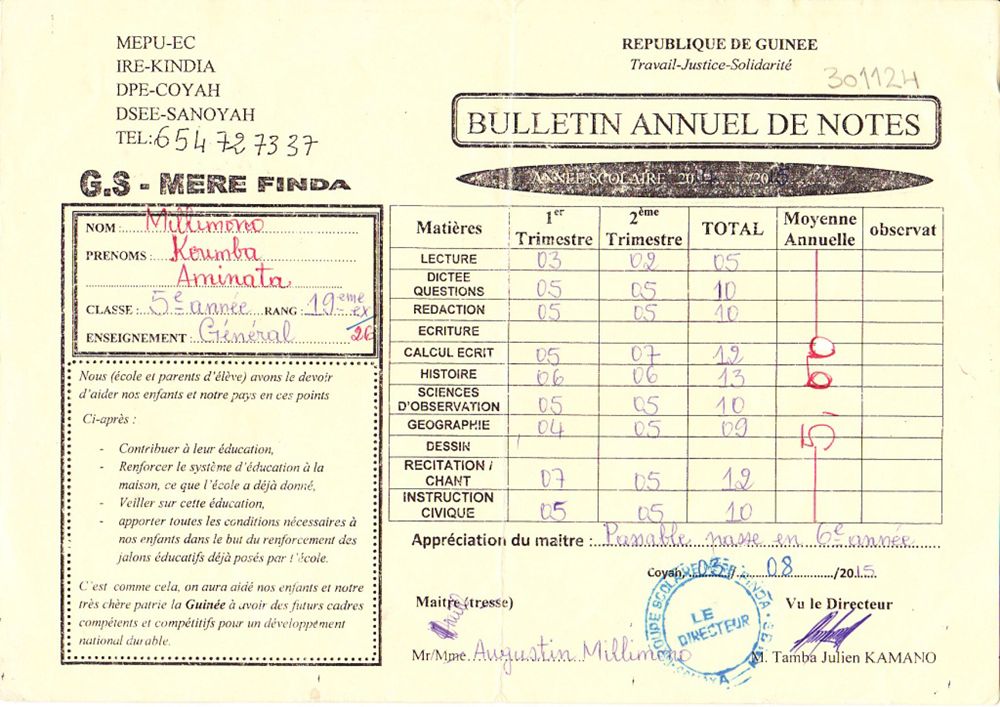 MEPU-EC
IRE-KINDIA
DPE-COYAH
DSEE-SANOYAH
TEL: 654 72 73 37
REPUBLIQUE DE GUINEE
Travail-Justice-Solidarité
301124
BULLETIN ANNUEL DE NOTES
G.S - MERE FINDA
ANNÉE SCOLAIRE 20 /20
NOM : Millimono
PRENOMS : Koumba
Aminata
CLASSE : 5e année RANG : 19ème ex
ENSEIGNEMENT : Général 26
Nous (école et parents d'élève) avons le devoir
d'aider nos enfants et notre pays en ces points
Ci-après :
- Contribuer à leur éducation,
- Renforcer le système d'éducation à la
maison, ce que l'école a déjà donné,
- Veiller sur cette éducation,
- apporter toutes les conditions nécessaires à
nos enfants dans le but du renforcement des
jalons éducatifs déjà posés par l'école.
C'est comme cela, on aura aidé nos enfants et notre
très chère patrie la Guinée à avoir des futurs cadres
compétents et compétitifs pour un développement
national durable.
Matières 1er Trimestre 2ème Trimestre TOTAL Moyenne Annuelle observat
LECTURE 03 02 05
DICTEE QUESTIONS 05 05 10
REDACTION 05 05 10
ECRITURE
CALCUL ECRIT 05 07 12
HISTOIRE 06 06 13
SCIENCES D'OBSERVATION 05 05 10
GEOGRAPHIE 04 05 09
DESSIN
RECITATION / CHANT 07 05 12
INSTRUCTION CIVIQUE 05 05 10
5,60
Appréciation du maitre : Passable passe en 6e année
Coyah, 03 / 08 /2015
Maitre (tresse)
Vu le Directeur
LE
DIRECTEUR
Mr/Mme Augustin Millimono
M. Tamba Julien KAMANO